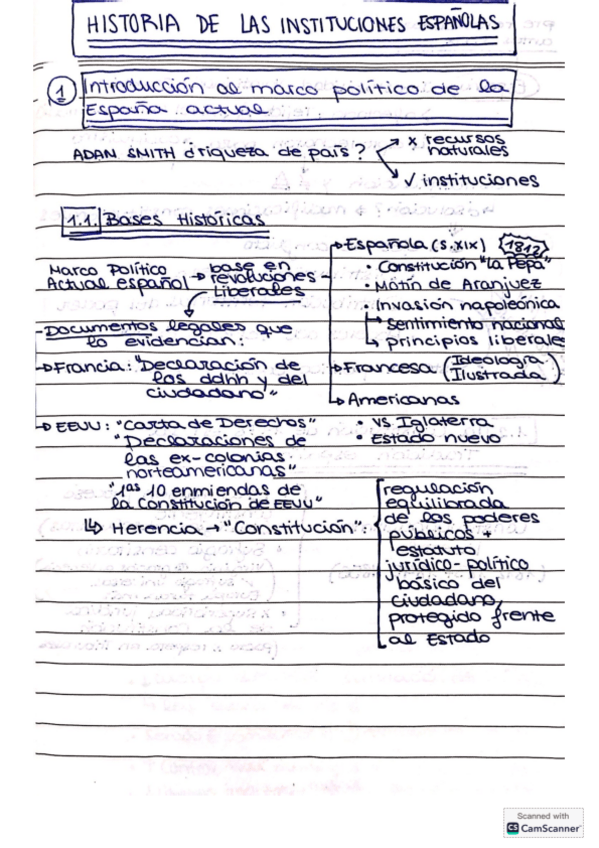 HISTORIA DE LAS INSTITUCIONES ESPAÑOLAS
1 Introducción al marco político de la
España actual
ADAN SMITH ¿riqueza de país?
x recursos
naturales
✓ instituciones
1.1. Bases Históricas
Marco Político
Actual español → base en
revoluciones
Liberales
→ Española (s.XIX) 1812
• Constitución "La Pepa"
• Motín de Aranjuez
• Invasión napoleónica
→ sentimiento nacional
→ principios liberales
→ Francesa (Ideología
Ilustrada)
→ Americanas
• vs Iglaterra
• Estado nuevo
- Documentos legales que
lo evidencian:
→ Francia: "Declaración de
los ddhh y del
ciudadano"
→ EEUU: "Carta de Derechos"
"Declaraciones de
las ex-colonias
norteamericanas"
"1as 10 enmiendas de
la Constitución de EEUU"
↳ Herencia → "Constitución":
regulación
equilibrada
de los poderes
públicos +
estatuto
jurídico-político
básico del
ciudadano,
protegido frente
al Estado
Scanned with
CS CamScanner